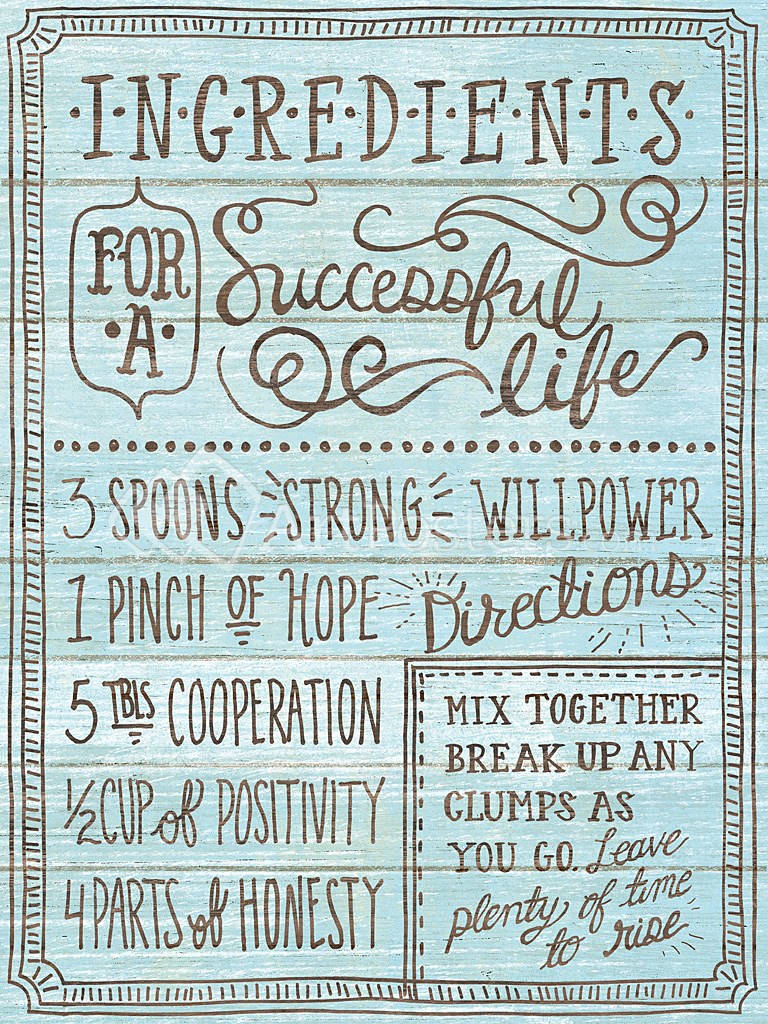 ·I·N·G·R·E·D·I·E·N·T·S·
FOR
·A·
Successful
life
3 SPOONS STRONG WILLPOWER
1 PINCH OF HOPE
Directions
5 TBLS COOPERATION
½ CUP of POSITIVITY
4 PARTS of HONESTY
MIX TOGETHER
BREAK UP ANY
CLUMPS AS
YOU GO. Leave
plenty of time
to rise